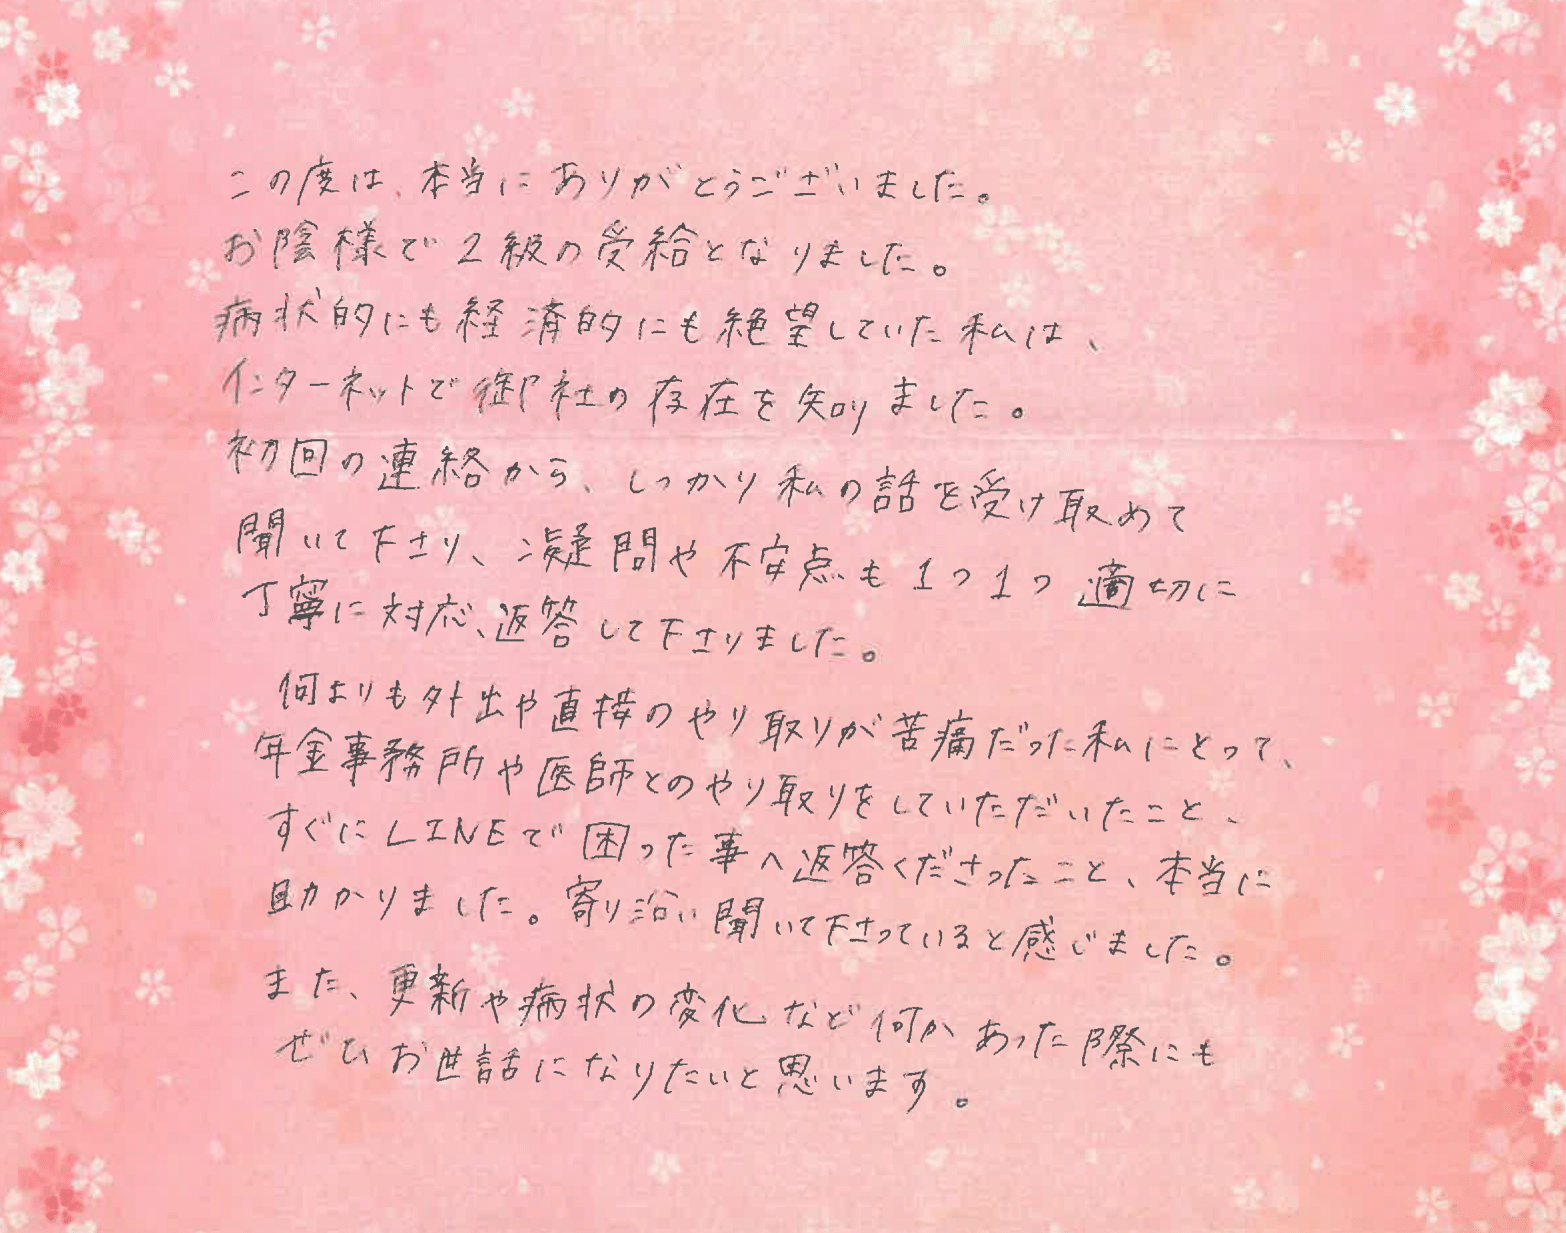 この度は、本当にありがとうございました。
お陰様で2級の受給となりました。
病状的にも経済的にも絶望していた私は、
インターネットで御社の存在を知りました。
初回の連絡から、しっかり私の話を受け取めて
聞いて下さり、凝問や不安点も1つ1つ適切に
丁寧に対応、返答して下さりました。
何よりも外出や直接のやり取りが苦痛だった私にとって、
年金事務所や医師とのやり取りをしていただいたこと、
すぐにLINEで困った事へ返答くださったこと、本当に
助かりました。寄り沿い聞いて下さっていると感じました。
また、更新や病状の変化など何かあった際にも
ぜひお世話になりたいと思います。